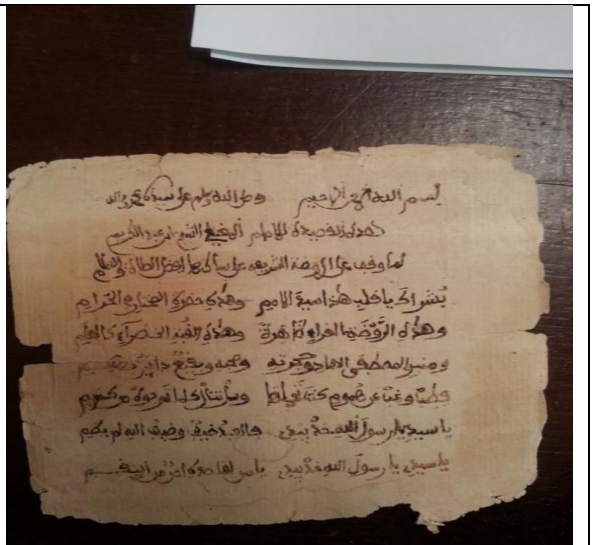 بسم الله الرحمن الرحيم وصلى الله وسلم على سيدنا محمد وآله
هذه القصيدة للإمام المغيلي الشيخ بن عبد الكريم
لما وقف على الروضة الشريفة على ساكنها أفضل الصلاة والسلام
بُشْراكَ يا قلب هذا سيد الأمم وهذه حضرة المختار في الحرم
وهذه الرَّوْضة الغراء ظاهرة وهذه القبة الخضراء كالعلم
ومنبر المصطفى الهادي وحجرته وصحبه وبقيعٌ دائر بهم
فطب وغب عن هموم كنت وسل تنل كلما ترجوه من كرم
يا سيدي يا رسول الله خذ بيدي فالعبد ضيف وضيف الله لم يضم
يا سيدي يا رسول الله خذ بيدي يا من لقاصده